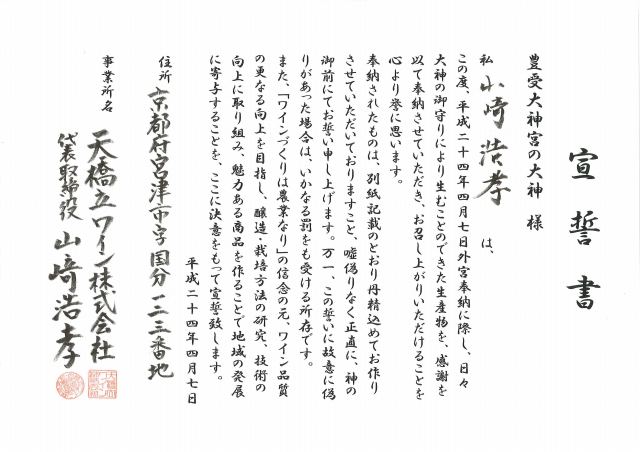 宣誓書
豊受大神宮の大神 様
私 山崎浩孝 は、
この度、平成二十四年四月七日外宮奉納に際し、日々
大神の御守りにより生むことのできた生産物を、感謝を
以て奉納させていただき、お召し上がりいただけることを
心より誉に思います。
奉納されたものは、別紙記載のとおり丹精込めてお作り
させていただいておりますこと、嘘偽りなく正直に、神の
御前にてお誓い申し上げます。万一、この誓いに故意に偽
りがあった場合は、いかなる罰をも受ける所存です。
また、「ワインづくりは農業なり」の信念の元、ワイン品質
の更なる向上を目指し、醸造・栽培方法の研究、技術の
向上に取り組み、魅力ある商品を作ることで地域の発展
に寄与することを、ここに決意をもって宣誓致します。
平成二十四年四月七日
住所 京都府宮津市字国分一二三番地
事業所名 天橋立ワイン株式会社
代表取締役 山崎浩孝